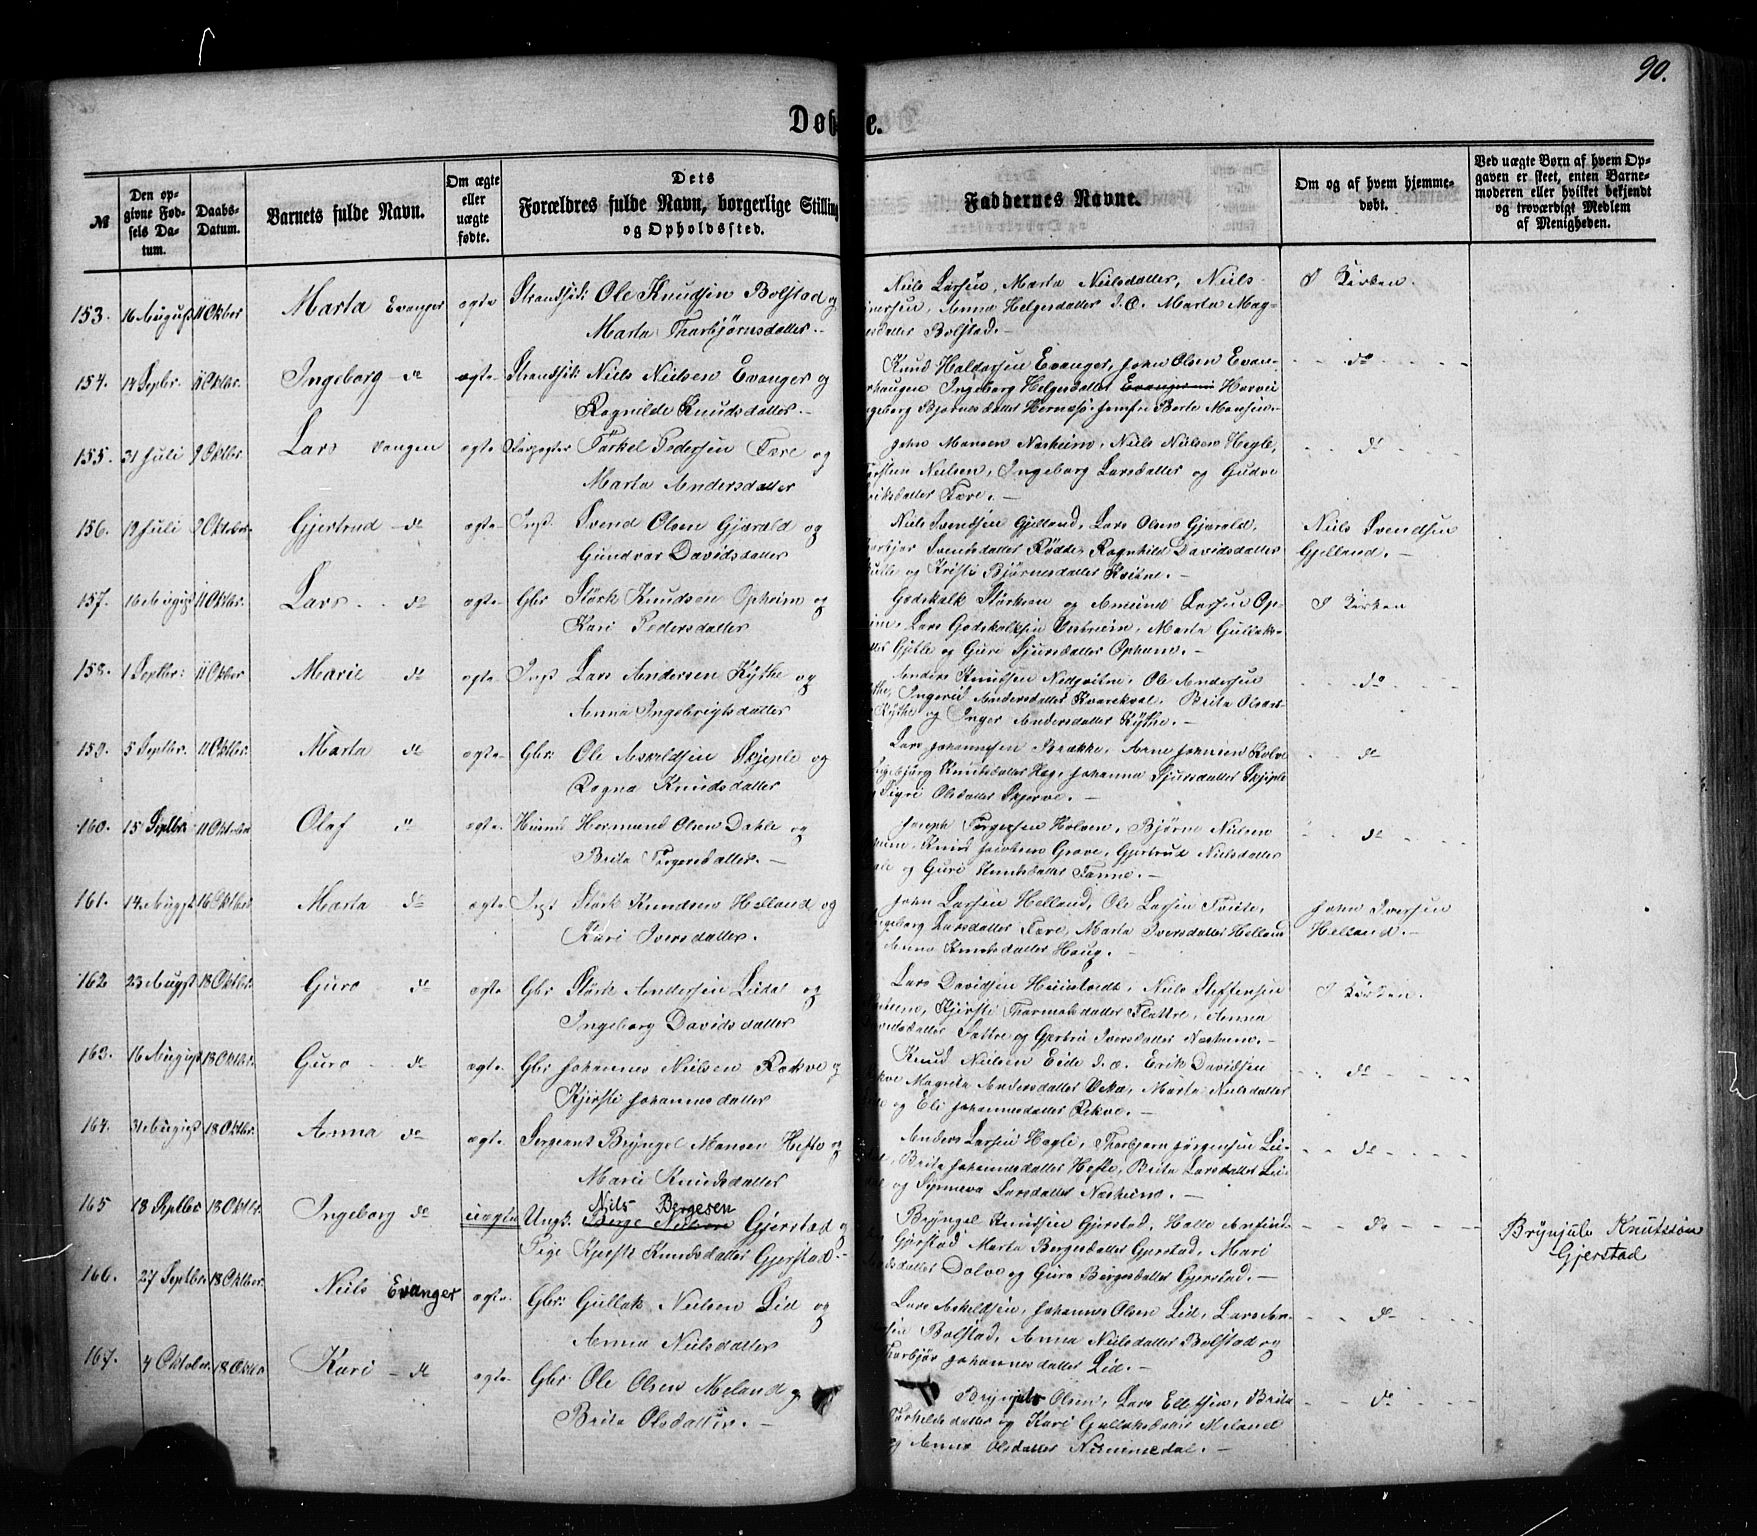 90.
Døbte.
№
Den opgivne Fødsels Datum.
Daabs-Datum.
Barnets fulde Navn.
Om ægte eller uægte fødte.
Dets Forældres fulde Navn, borgerlige Stilling og Opholdssted.
Faddernes Navne.
Om og af hvem hjemmedøbt.
Ved uægte Børn af hvem Opgaven er skeet, enten Barnemoderen eller hvilket bekjendt og troværdigt Medlem af Menigheden.
153. 16 August 11 Oktber Marta Evanger ægte Strandsid: Ole Knudsen Bolstad og
Marta Thorbjørnsdatter.
Niels Larsen, Marta Nielsdatter, Niels
Anna Helgesdatter s.C. Marta Mag-
Bolstad.
I Kirken.
154. 14 Septbr. 11 Oktbr. Ingeborg do ægte Strandsid: Niels Nielsen Evanger og
Ragnilde Knudsdatter.
Knud Haldorsen Evanger, John Olsen Evan-
Ingeborg Helgesdatter
Bjørnesdatter Hernes, Jomfru Berte Monsen.
do
155. 31 Juli 9 Oktbr. Lars Vangen ægte Torkel Pedersen Fære og
Marta Andersdatter
John Monsen Nesheim, Niels Nielsen Hegle,
Nielsen, Ingeborg Larsdatter og Gudve
Fære.
do
156. 19 Juli 9 Oktober Gjertrud do ægte Inst. Svend Olsen Gjerald og
Gundvor Davidsdatter
Niels Svendsen Gjelland, Lars Olsen Gjerald,
Svendsdatter Rødse, Ragnhild Davidsdatter
og Kristi Bjørnesdatter
Niels Svendsen
Gjelland.
157. 16 August 11 Oktbr. Lars do ægte Gbr Størk Knudsen Opheim og
Kari Pedersdatter
Godskalk Størksen og Amund Larsen Op-
Lars Godskalksen Vestrem, Marta Gulleks-
Gjelle og Guri Sjursdatter Opheim.
I Kirken
158. 1 Septbr: 11 Oktber Marie do ægte Inst Lars Andersen Kythe og
Anna Ingebrigtsdatter
Anders Knudsen Nedkvitne, Ole Andersen
Ingerid Andersdatter Kvarekval, Brita
Kythe og Inger Andersdatter Kythe.
do
159. 5 Septbr. 11 Oktbr. Marta do ægte Gbr: Ole Askildsen Skjeple og
Ragna Knudsdatter
Lars Johannesen Brække, Arne Johnsen Kolve
Knudsdatter Hæg, Johanna Sjursdatter Skjeple
Sigri Olsdatter Skjerve.
do
160. 15 Septbr 11 Oktober Olaf do ægte Husmd Hermund Olsen Dahle og
Brita Torgersdatter.
Joseph Torgersen Holven, Bjørne Nielsen
Knud Jacobsen Grove, Gjertrud Nielsdatter
og Guri Knudsdatter Tanne.
do
161. 14 August 16 Oktber Marta do ægte Inst Størk Knudsen Helland og
Kari Iversdatter.
John Larsen Helland, Ole Larsen Tvite,
Larsdatter Fære, Marta Iversdatter Helland
Anna Knudsdatter Haug.
John Iversen
Helland.
162 23 August 18 Oktbr. Guro do ægte Gbr Størk Andersen Lidal og
Ingeborg Davidsdatter
Lars Davidsen Heimtvedt, Niels Steffensen
Kjersti Thormodsdatter Flattre, Anna
Sættre og Gjertru Iversdatter Nesheim.
I Kirken.
163. 16 August 18 Oktbr. Guro do ægte Gbr Johannes Nielsen Rokve og
Kjersti Johannesdatter
Knud Nielsen Eide s.C. Erik Davidsen
Magrita Andersdatter Marta Nielsdatter
og Eli Johannesdatter Rekve.
do
164. 31 August 18 Oktbr. Anna do ægte Sergeant Bryngel Monsen Hefte og
Marie Knudsdatter
Anders Larsen Hegle, Thorbjørn Jørgensen Li-
Brita Johannesdatter Hefte, Brita Larsdatter
og Synneva Larsdatter Nesheim.
do
165 18 Septber 18 Oktbr. Ingeborg do uægte Ungk. Nils Bergesen Berge Nielsen Gjerstad og
Pige Kjersti Knudsdatter Gjerstad.
Bryngel Knudsen Gjerstad, Halle Anfind-
Gjerstad, Marta Bergesdatter Gjerstad, Mari
Dolve og Guro Bergesdatter Gjerstad.
do
Brynjulv Knutssøn
Gjerstad
166. 27 Septbr 18 Oktber. Niels Evanger ægte Gbr: Gullak Nielsen Lid og
Anna Nielsdatter
Lars Askildsen, Johannes Olsen Lid, Lars
Bolstad, Anna Nielsdatter Bolstad og
Thorbjør Johannesdatter Lid.
do
167. 4 Oktober 18 Oktber Kari do ægte Gbr. Ole Olsen Meland og
Brita Olsdatter.
Olsen, Lars Ellefsen, Brita
Torkildsdatter og Kari Gullaksdatter Meland
og Anna Olsdatter
do